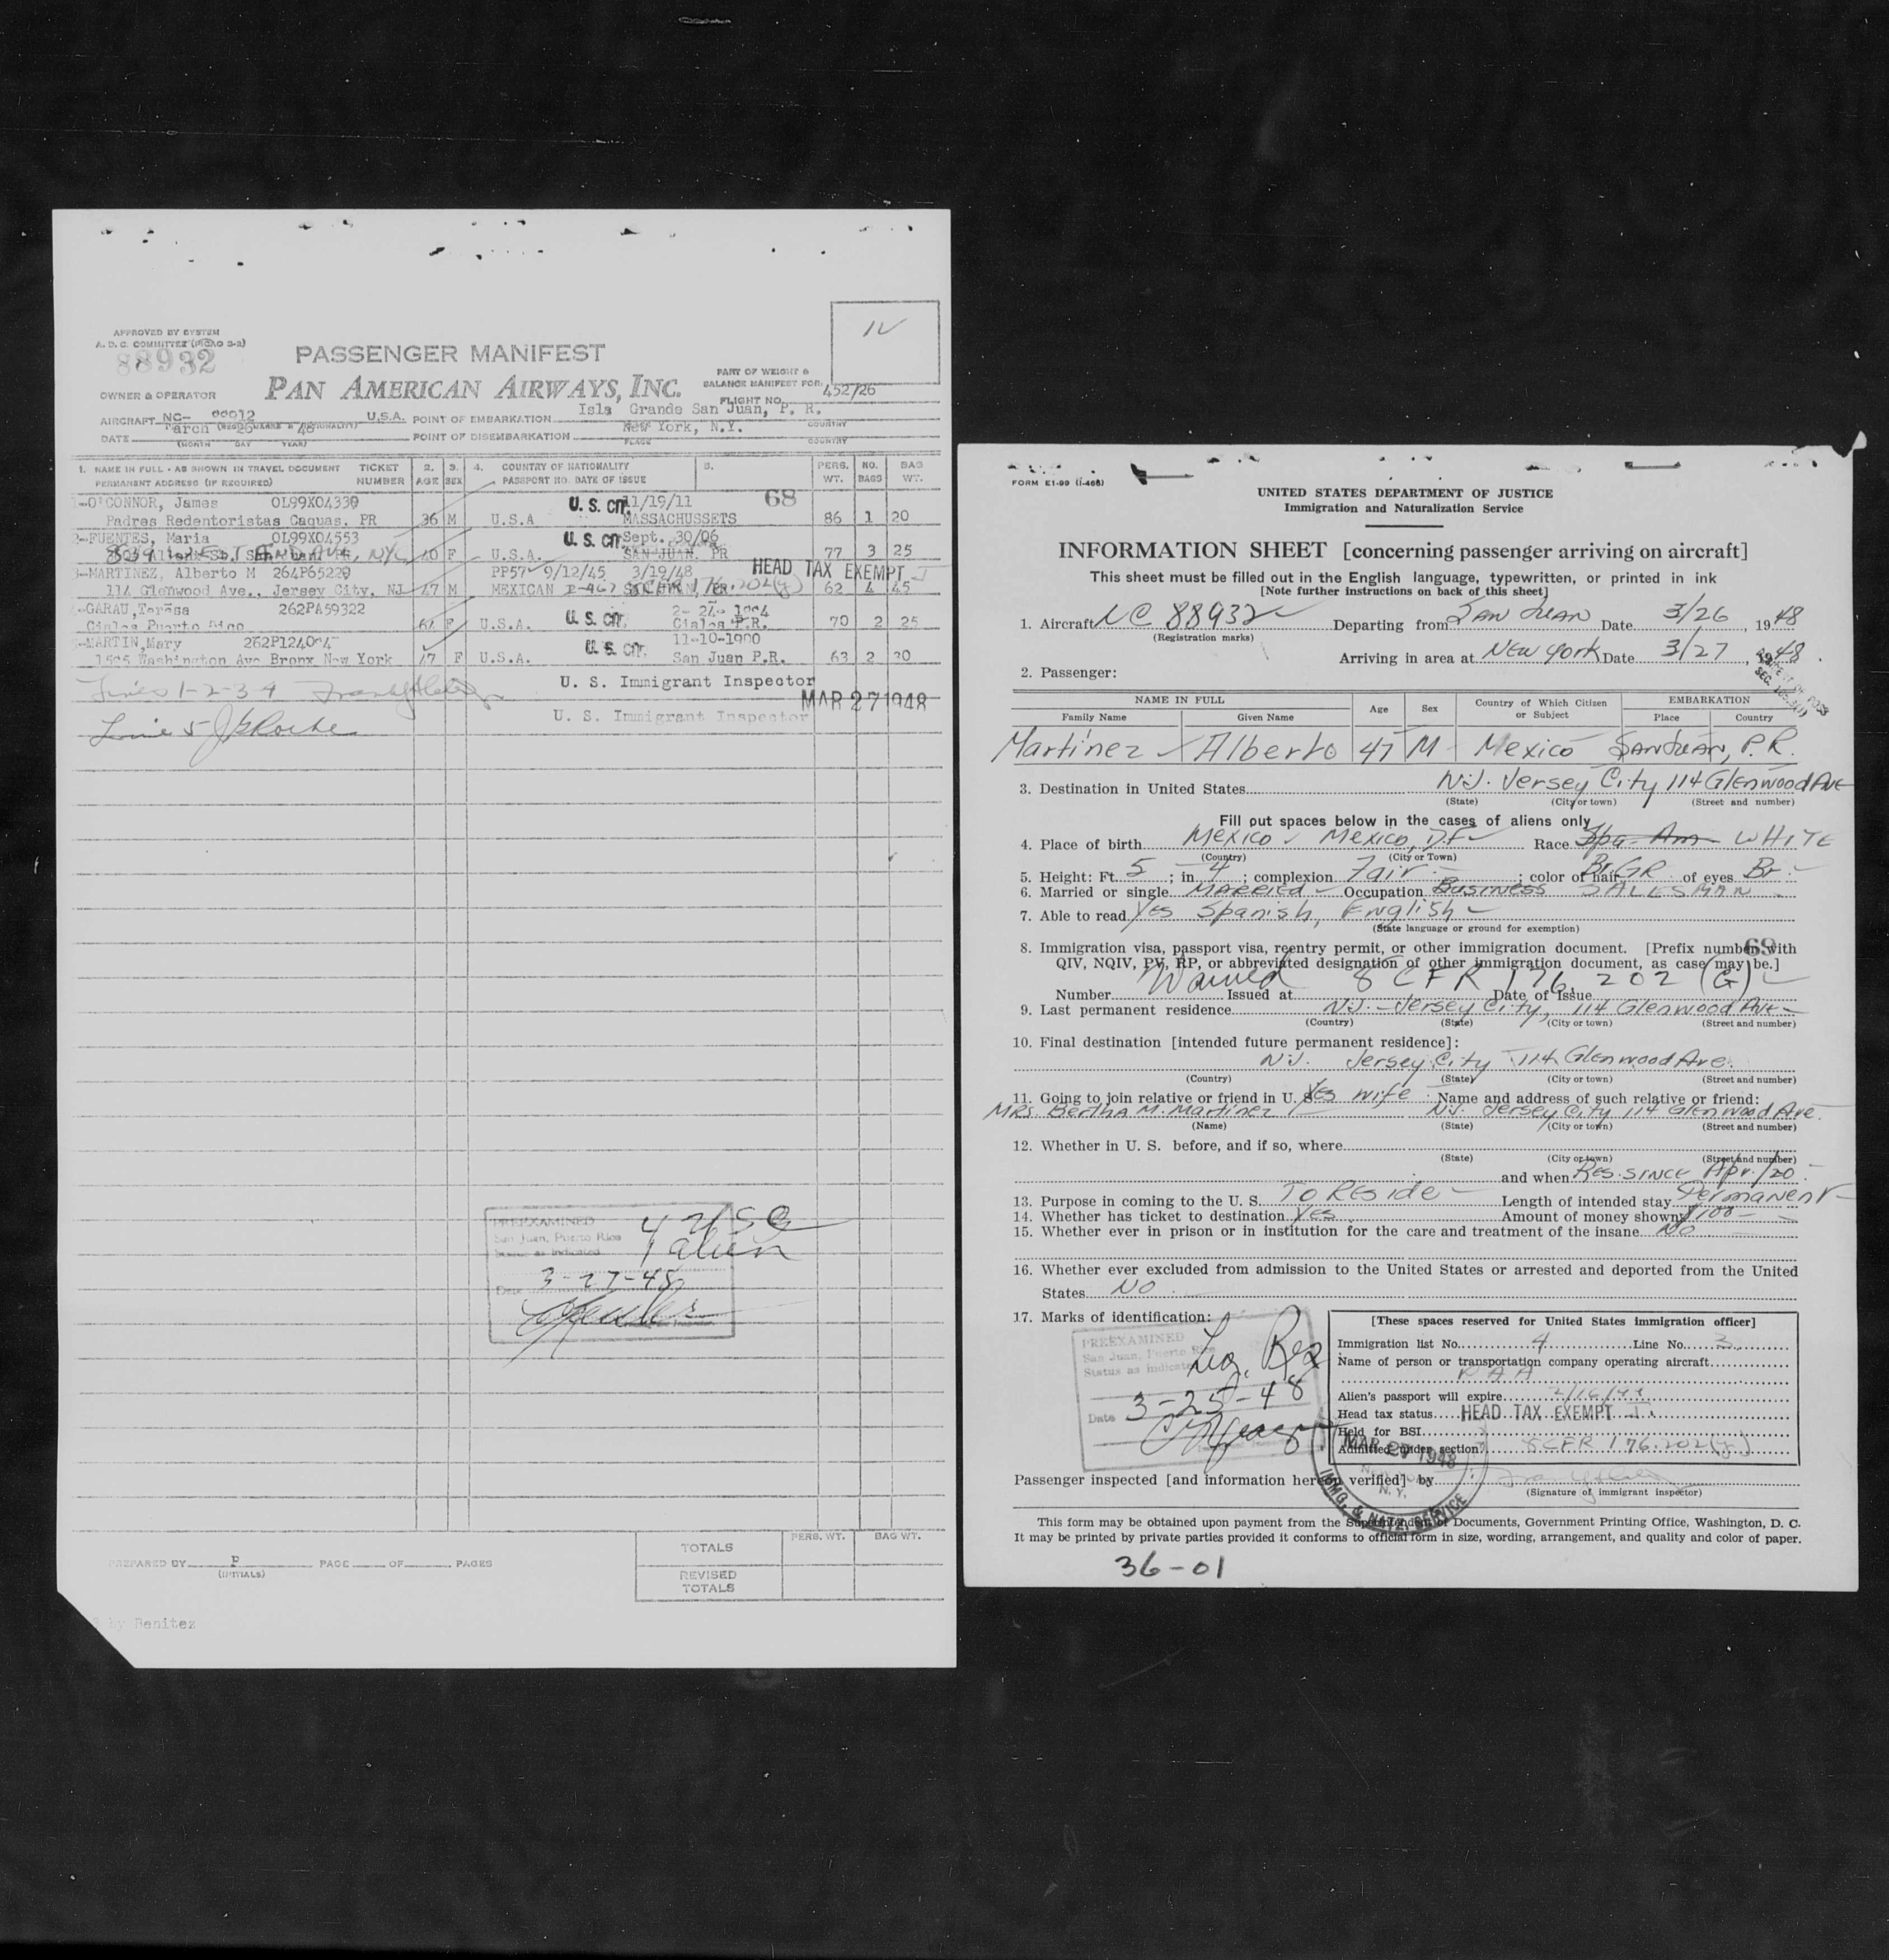 APPROVED BY SYSTEM
A. D. C. COMMITTEE
88932
PASSENGER MANIFEST
PAN AMERICAN AIRWAYS, INC.
OWNER & OPERATOR
PART OF WEIGHT &
BALANCE MANIFEST FOR:
FLIGHT NO. 452/26
AIRCRAFT NC- U.S.A. POINT OF EMBARKATION Isla Grande San Juan, P. R.
COUNTRY
DATE 26 48 POINT OF DISEMBARKATION New York, N.Y.
(MONTH DAY YEAR) PLACE COUNTRY
1. NAME IN FULL - AS SHOWN IN TRAVEL DOCUMENT TICKET 2. 3. 4. COUNTRY OF NATIONALITY 5. PERS. NO. BAG
PERMANENT ADDRESS (IF REQUIRED) NUMBER AGE SEX PASSPORT NO. DATE OF ISSUE WT. BAGS WT.
O'CONNOR, James OL99X04339 U. S. CIT. 11/19/11 68
Padres Redentoristas Caguas, PR 36 M U.S.A MASSACHUSSETS 86 1 20
FUENTES, Maria OL99X04553 U. S. CIT Sept. 30/06
WEST END AVE, NYC 40 F U.S.A. SAN JUAN, PR 77 3 25
MARTINEZ, Alberto M 264P65229 PP57 9/12/45 3/19/48 HEAD TAX EXEMPT I
114 Glenwood Ave., Jersey City, NJ 47 M MEXICAN 8 CFR 176.202(g) 62 4 45
GARAU, Teresa 262PA59322 U. S. CIT.
Ciales Puerto Rico F U.S.A. Ciales P.R. 70 2 25
MARTIN, Mary U. S. CIT. 11-10-1900
Washington Ave Bronx New York 47 F U.S.A. San Juan P.R. 63 2 30
Lines 1-2-3-4 U. S. Immigrant Inspector
MAR 27 1948
U. S. Immigrant Inspector
Line 5
PREEXAMINED 4 USC
San Juan, Puerto Rico 1 alien
Status as indicated
Date 3-27-48
TOTALS PERS. WT. BAG WT.
REVISED
TOTALS
PREPARED BY P PAGE OF PAGES
(INITIALS)
by Benitez
FORM
UNITED STATES DEPARTMENT OF JUSTICE
Immigration and Naturalization Service
INFORMATION SHEET [concerning passenger arriving on aircraft]
This sheet must be filled out in the English language, typewritten, or printed in ink
[Note further instructions on back of this sheet]
1. Aircraft NC 88932 Departing from SAN JUAN Date 3/26, 1948
(Registration marks)
Arriving in area at NEW YORK Date 3/27, 1948.
2. Passenger:
NAME IN FULL Age Sex Country of Which Citizen or Subject EMBARKATION
Family Name Given Name Place Country
Martinez Alberto 47 M Mexico SAN JUAN, P.R.
3. Destination in United States N.J. Jersey City 114 Glenwood Ave
(State) (City or town) (Street and number)
Fill out spaces below in the cases of aliens only
4. Place of birth Mexico Mexico, D.F. Race Spa-Am WHITE
(Country) (City or Town)
5. Height: Ft. 5; in 4; complexion Fair; color of hair Br.GR of eyes Br.
6. Married or single MARRIED Occupation Business SALESMAN
7. Able to read Yes Spanish, English
(State language or ground for exemption)
8. Immigration visa, passport visa, reentry permit, or other immigration document. [Prefix number with
69
QIV, NQIV, PV, RP, or abbreviated designation of other immigration document, as case may be.]
Number Waived Issued at 8 CFR 176.202 (G) Date of Issue
9. Last permanent residence N.J. - Jersey City, 114 Glenwood Ave
(Country) (State) (City or town) (Street and number)
10. Final destination [intended future permanent residence]:
N.J. Jersey City 114 Glenwood Ave.
(Country) (State) (City or town) (Street and number)
11. Going to join relative or friend in U. S. Yes wife Name and address of such relative or friend:
MRS. Bertha M. Martinez N.J. Jersey City 114 Glenwood Ave.
(Name) (State) (City or town) (Street and number)
12. Whether in U. S. before, and if so, where
(State) (City or town) (Street and number)
and when Res. SINCE Apr./20
13. Purpose in coming to the U. S. To Reside Length of intended stay Permanent
14. Whether has ticket to destination Yes Amount of money shown $100
15. Whether ever in prison or in institution for the care and treatment of the insane No
16. Whether ever excluded from admission to the United States or arrested and deported from the United
States NO
17. Marks of identification:
PREEXAMINED
San Juan, Puerto Rico
Status as indicated
Leg. Res
Date 3-25-48
[These spaces reserved for United States immigration officer]
Immigration list No. 4 Line No. 3
Name of person or transportation company operating aircraft
PAA
Alien's passport will expire
Head tax status HEAD TAX EXEMPT I.
Held for BSI
Admitted under section 8CFR 176.202(g)
MAR 27 1948
N. Y.
IMMIG. & NATZ. SERVICE
Passenger inspected [and information hereon verified] by
(Signature of immigrant inspector)
This form may be obtained upon payment from the Superintendent of Documents, Government Printing Office, Washington, D. C.
It may be printed by private parties provided it conforms to official form in size, wording, arrangement, and quality and color of paper.
36-01